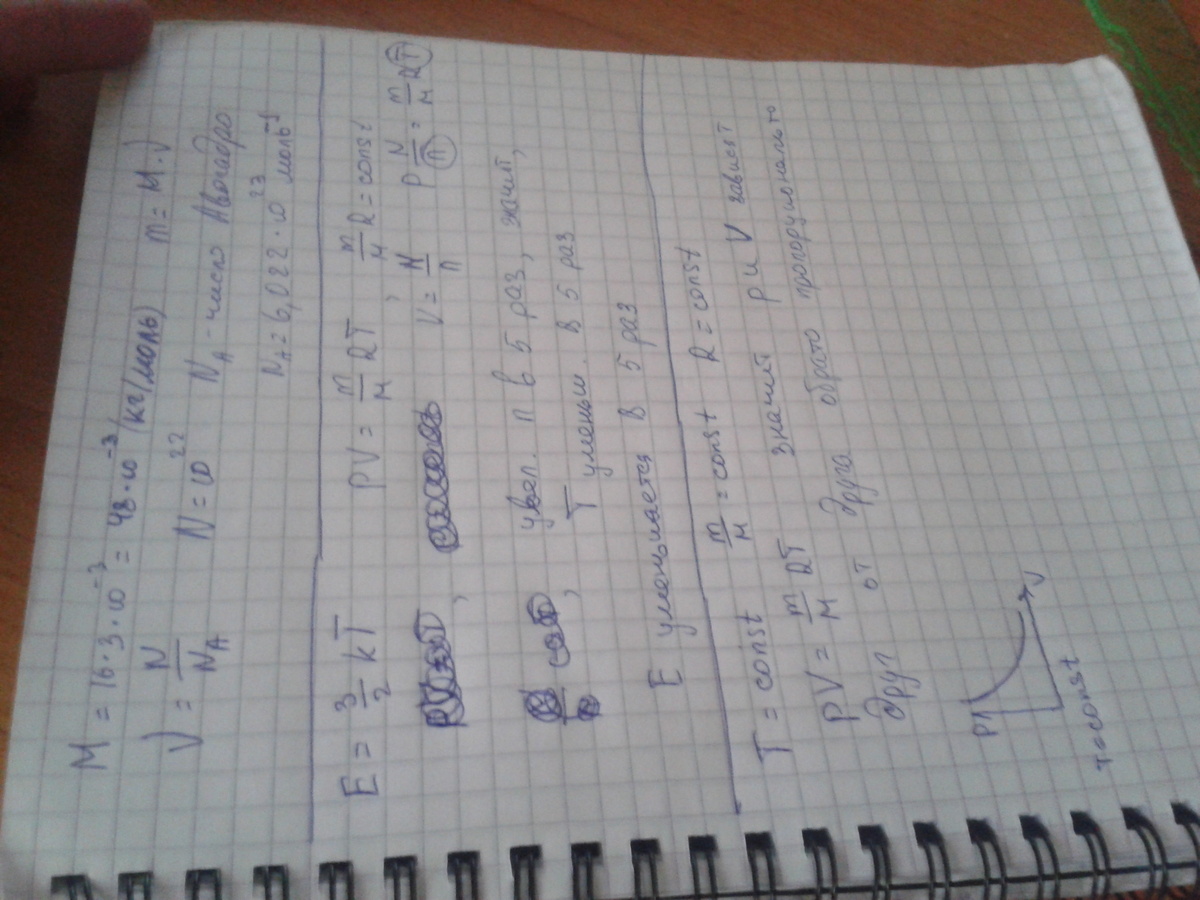 M = 16·3·10⁻³ = 48·10⁻³ (кг/моль) m = M·ν
ν = N/N_A N = 10²² N_A - число Авогадро
N_A = 6,022·10²³ моль⁻¹
E = 3/2 kT PV = m/M RT, m/M R = const
V = N/n P N/n = m/M RT
увел. n в 5 раз, значит,
T уменьш. в 5 раз
E уменьшается в 5 раз
T = const m/M = const R = const
PV = m/M RT значит p и V зависят
друг от друга обратно пропорционально
P
V
T=const